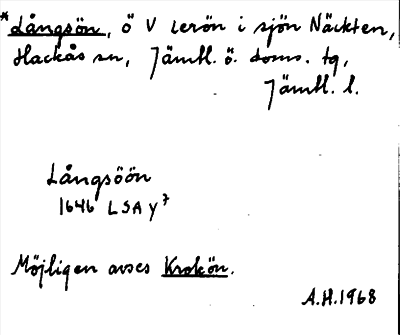 *Långsön, ö V Lerön i sjön Näckten,
Hackås sn, Jämtl. ö. doms. tg,
Jämtl. l.
Långsöön
1646 LSA Y⁷
Möjligen avses Krokön.
A.H. 1968